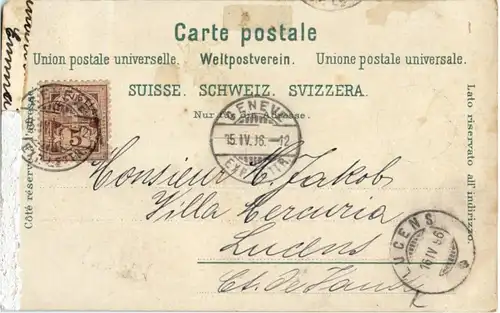 Carte postale
Union postale universelle. Weltpostverein. Unione postale universale.
SUISSE. SCHWEIZ. SVIZZERA.
Nur für die Adresse.
Côté réservé à l'adresse.
Lato riservato all' indirizzo.
5
GENÈVE
15.IV.96.-12
Monsieur C. Jakob
Villa Mercuria
Lucens
Ct. de Vaud
LUCENS
16 IV 96